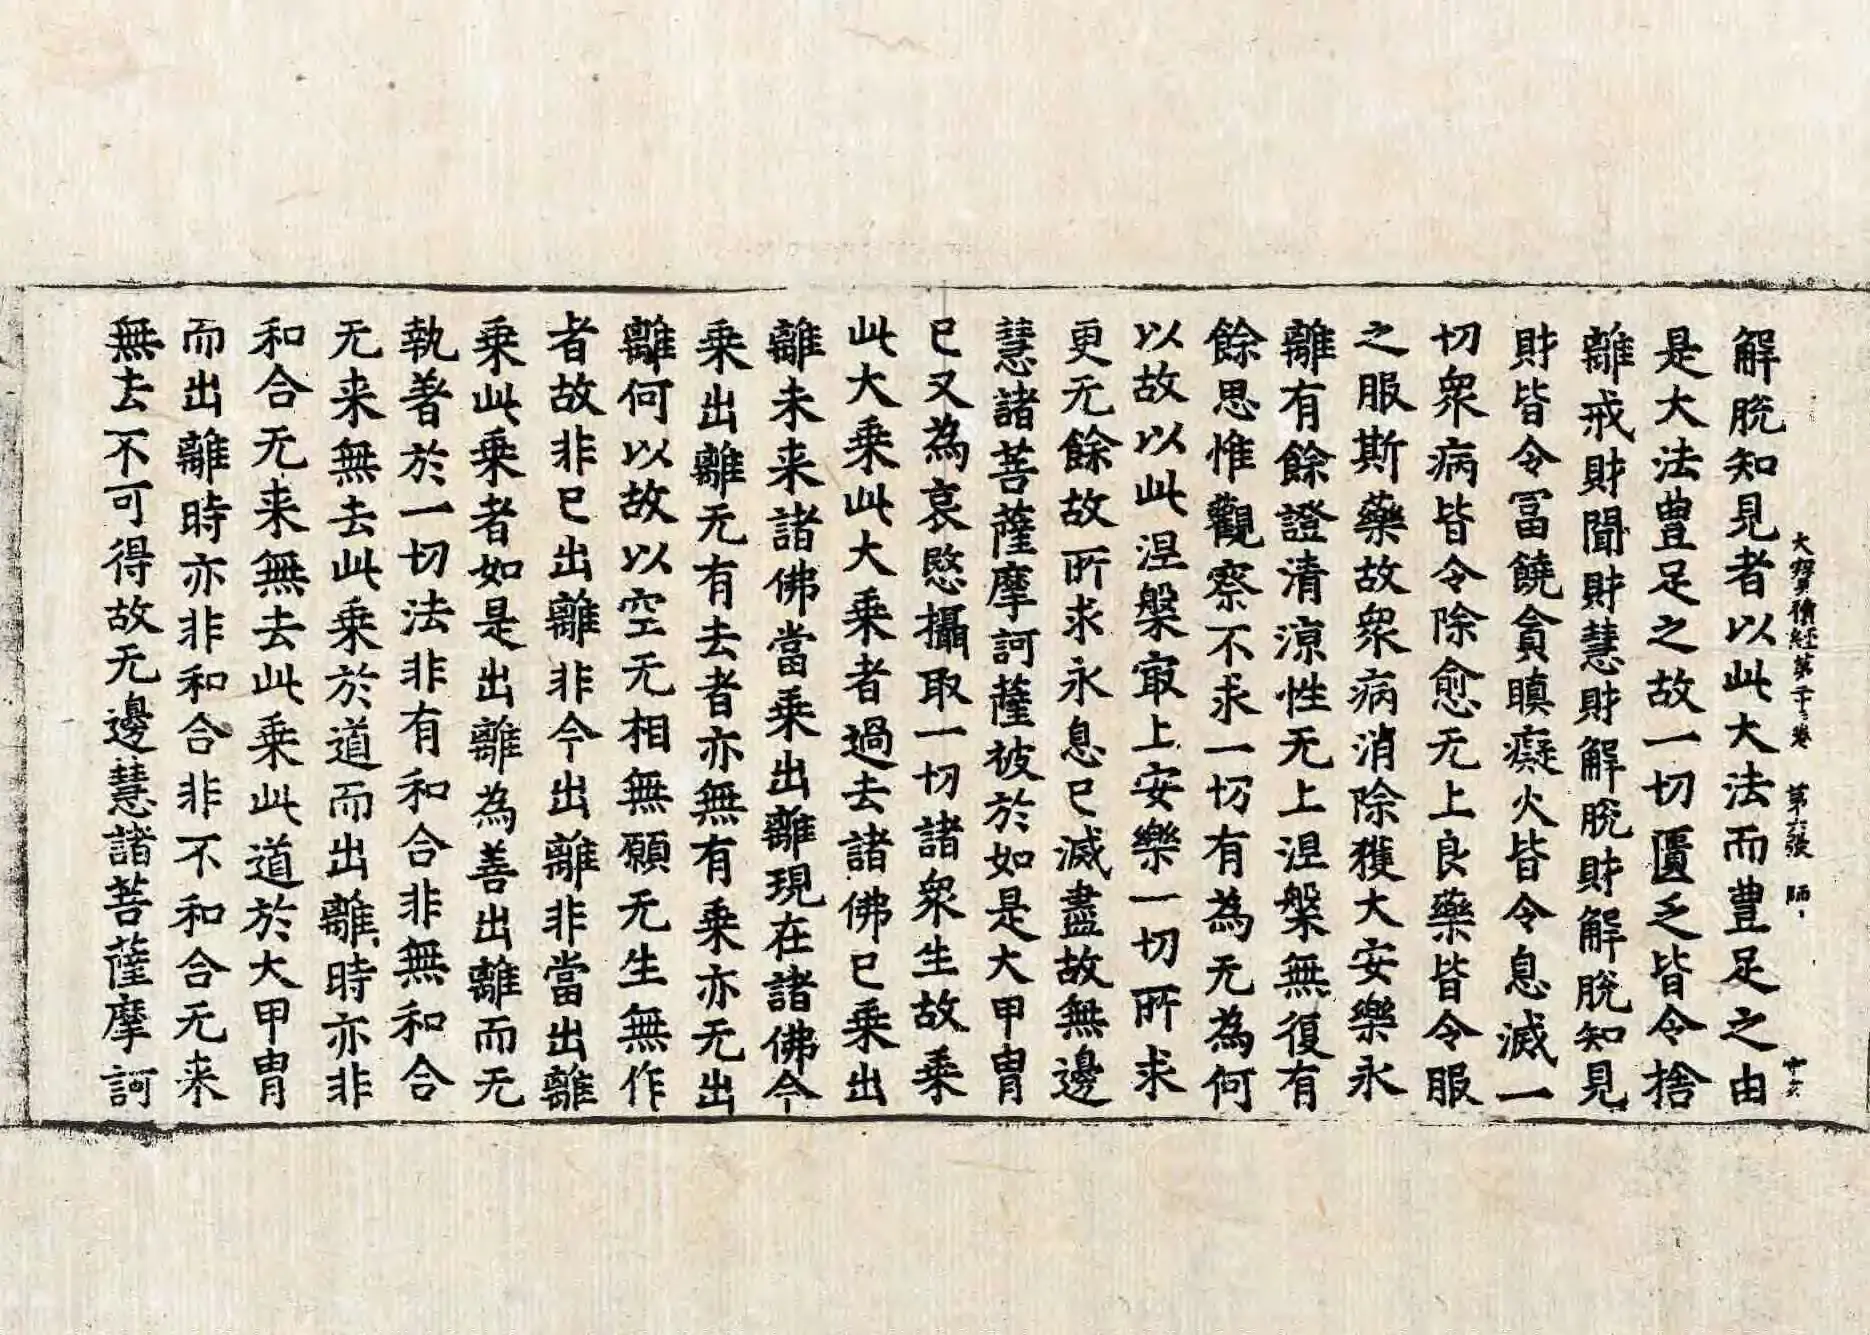 大寶積經第二十卷 第六張 師
解脫知見者以此大法而豊足之由
是大法豊足之故一切匱乏皆令捨
離戒財聞財慧財解脫財解脫知見
財皆令冨饒貪瞋癡火皆令息滅一
切眾病皆令除愈无上良藥皆令服
之服斯藥故眾病消除獲大安樂永
離有餘證清涼性无上涅槃無復有
餘思惟觀察不求一切有為无為何
以故以此涅槃㝡上安樂一切所求
更无餘故所求永息已滅盡故無邊
慧諸菩薩摩訶薩被於如是大甲冑
已又為哀愍攝取一切諸眾生故乘
此大乘此大乘者過去諸佛已乘出
離未来諸佛當乘出離現在諸佛今
乘出離无有去者亦無有乘亦无出
離何以故以空无相無願无生無作
者故非已出離非今出離非當出離
乘此乘者如是出離為善出離而无
執著於一切法非有和合非無和合
无来無去此乘於道而出離時亦非
和合无来無去此乘此道於大甲冑
而出離時亦非和合非不和合无来
無去不可得故无邊慧諸菩薩摩訶